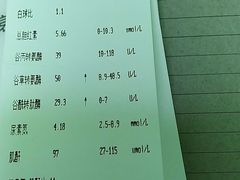 白球比 1.1
总胆红素 5.66 0-18.3 umol/L
谷丙转氨酶 39 19-118 U/L
谷草转氨酶 50 ↑ 8.9-48.5 U/L
谷酰转肽酶 29.3 ↑ 0-7 U/L
尿素氮 4.18 2.5-8.9 mmol/L
肌酐 97 27-115 umol/L